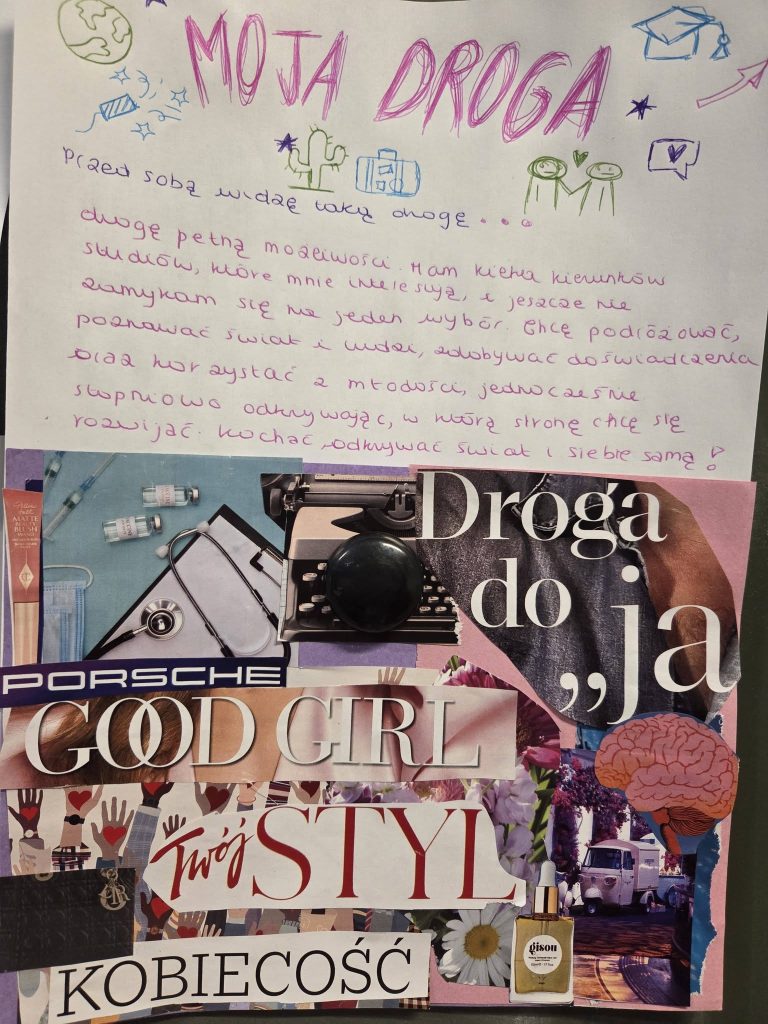 MOJA DROGA
Przed sobą widzę taką drogę...
drogę pełną możliwości. Mam kilka kierunków
studiów, które mnie interesują, i jeszcze nie
zamykam się na jeden wybór. Chcę podróżować,
poznawać świat i ludzi, zdobywać doświadczenia
oraz korzystać z młodości, jednocześnie
stopniowo odkrywając, w którą stronę chcę się
rozwijać. Kochać, odkrywać świat i siebie samą!
Droga
do
„ja
MATTE
BLUSH
PORSCHE
GOOD GIRL
Twój STYL
gisou
KOBIECOŚĆ